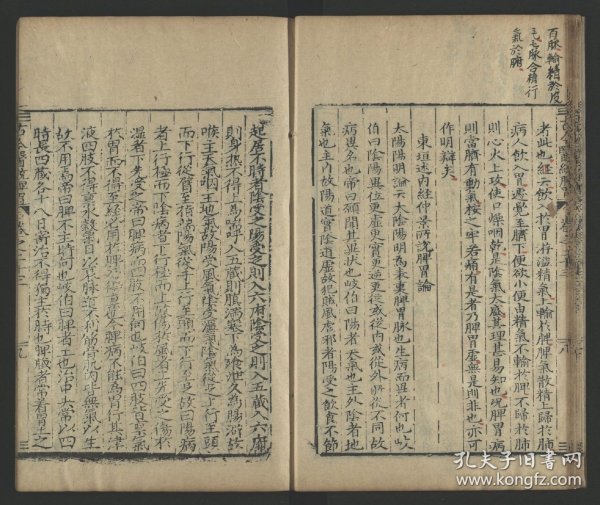 百脉輸精於皮
毛毛脉合精行
氣於腑
者此也經云飲入於胃游溢精氣上輸於脾脾氣散精上歸於肺
病人飲入胃遽覺至臍下便欲小便由精氣不輸於脾不歸於肺
則心火上攻使口燥咽乾是陰氣大盛其理甚易知也况脾胃病
則當臍有動氣按之牢若痛有是者乃脾胃虛無是則非也亦可
作明辯矣
東垣述内經仲景所說脾胃論
太陰陽明論云太陰陽明為表裏脾胃脉也生病而異者何也岐
伯曰陰陽異位更虛更實更逆更從或從内或從外所從不同故
病異名也帝曰願聞其異狀也岐伯曰陽者天氣也主外陰者地
氣也主内故陽道實陰道虛故犯賊風虛邪者陽受之飲食不節
起居不時者陰受之陽受之則入六府陰受之則入五藏入六府
則身熱不得卧上為喘呼入五藏則䐜滿閉塞下為飱泄久為腸澼故
喉主天氣咽主地氣故陽受風氣陰受濕氣陰氣從足上行至頭
而下行循臂至指端陽氣從手上行至頭而下行至足故曰陽病
者上行極而下陰病者下行極而上故傷於風者上先受之傷於
濕者下先受之帝曰脾病而四肢不用何也岐伯曰四肢皆稟氣
於胃而不得至經必因於脾乃得稟也今脾病不能為胃行其津
液四肢不得稟水穀氣日以衰脉道不利筋骨肌肉皆無氣以生
故不用焉帝曰脾不主時何也岐伯曰脾者土也治中央常以四
時長四藏各十八日寄治不得獨主於時也脾臟者常着胃土之
孔夫子旧书网
www.kongfz.com